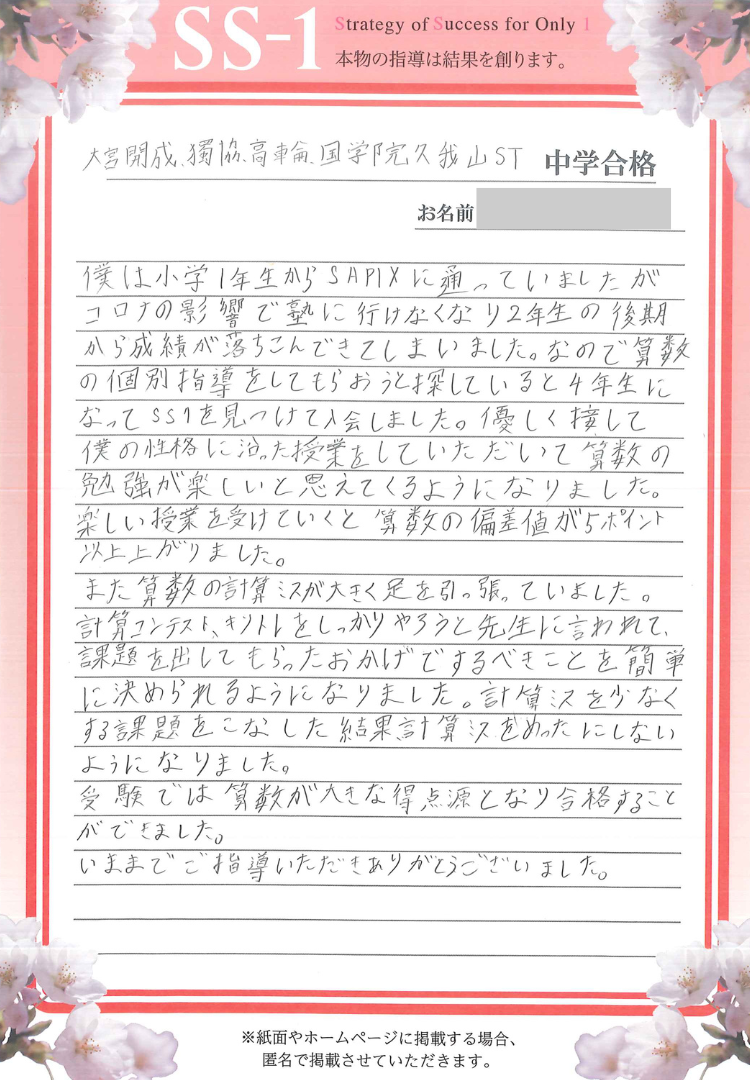 SS-1
Strategy of Success for Only 1
本物の指導は結果を創ります。
大宮開成、獨協、高輪、国学院久我山ST 中学合格
お名前
僕は小学1年生からSAPIXに通っていましたが
コロナの影響で塾に行けなくなり2年生の後期
から成績が落ちこんできてしまいました。なので算数
の個別指導をしてもらおうと探していると4年生に
なってSS1を見つけて入会しました。優しく接して
僕の性格に沿った授業をしていただいて算数の
勉強が楽しいと思えてくるようになりました。
楽しい授業を受けていくと算数の偏差値が5ポイント
以上上がりました。
また算数の計算ミスが大きく足を引っ張っていました。
計算コンテスト、キソトレをしっかりやろうと先生に言われて、
課題を出してもらったおかげでするべきことを簡単
に決められるようになりました。計算ミスを少なく
する課題をこなした結果、計算ミスをめったにしない
ようになりました。
受験では算数が大きな得点源となり合格すること
ができました。
いままでご指導いただきありがとうございました。
※紙面やホームページに掲載する場合、
匿名で掲載させていただきます。